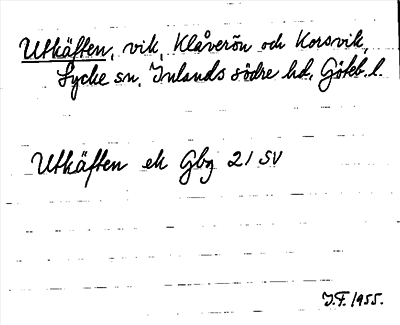 Utkäften, vik, Klåverön och Korsvik,
Lycke sn, Inlands södre hd, Göteb. l.
Utkäften ek Gbg 21 SV
J.F. 1955.